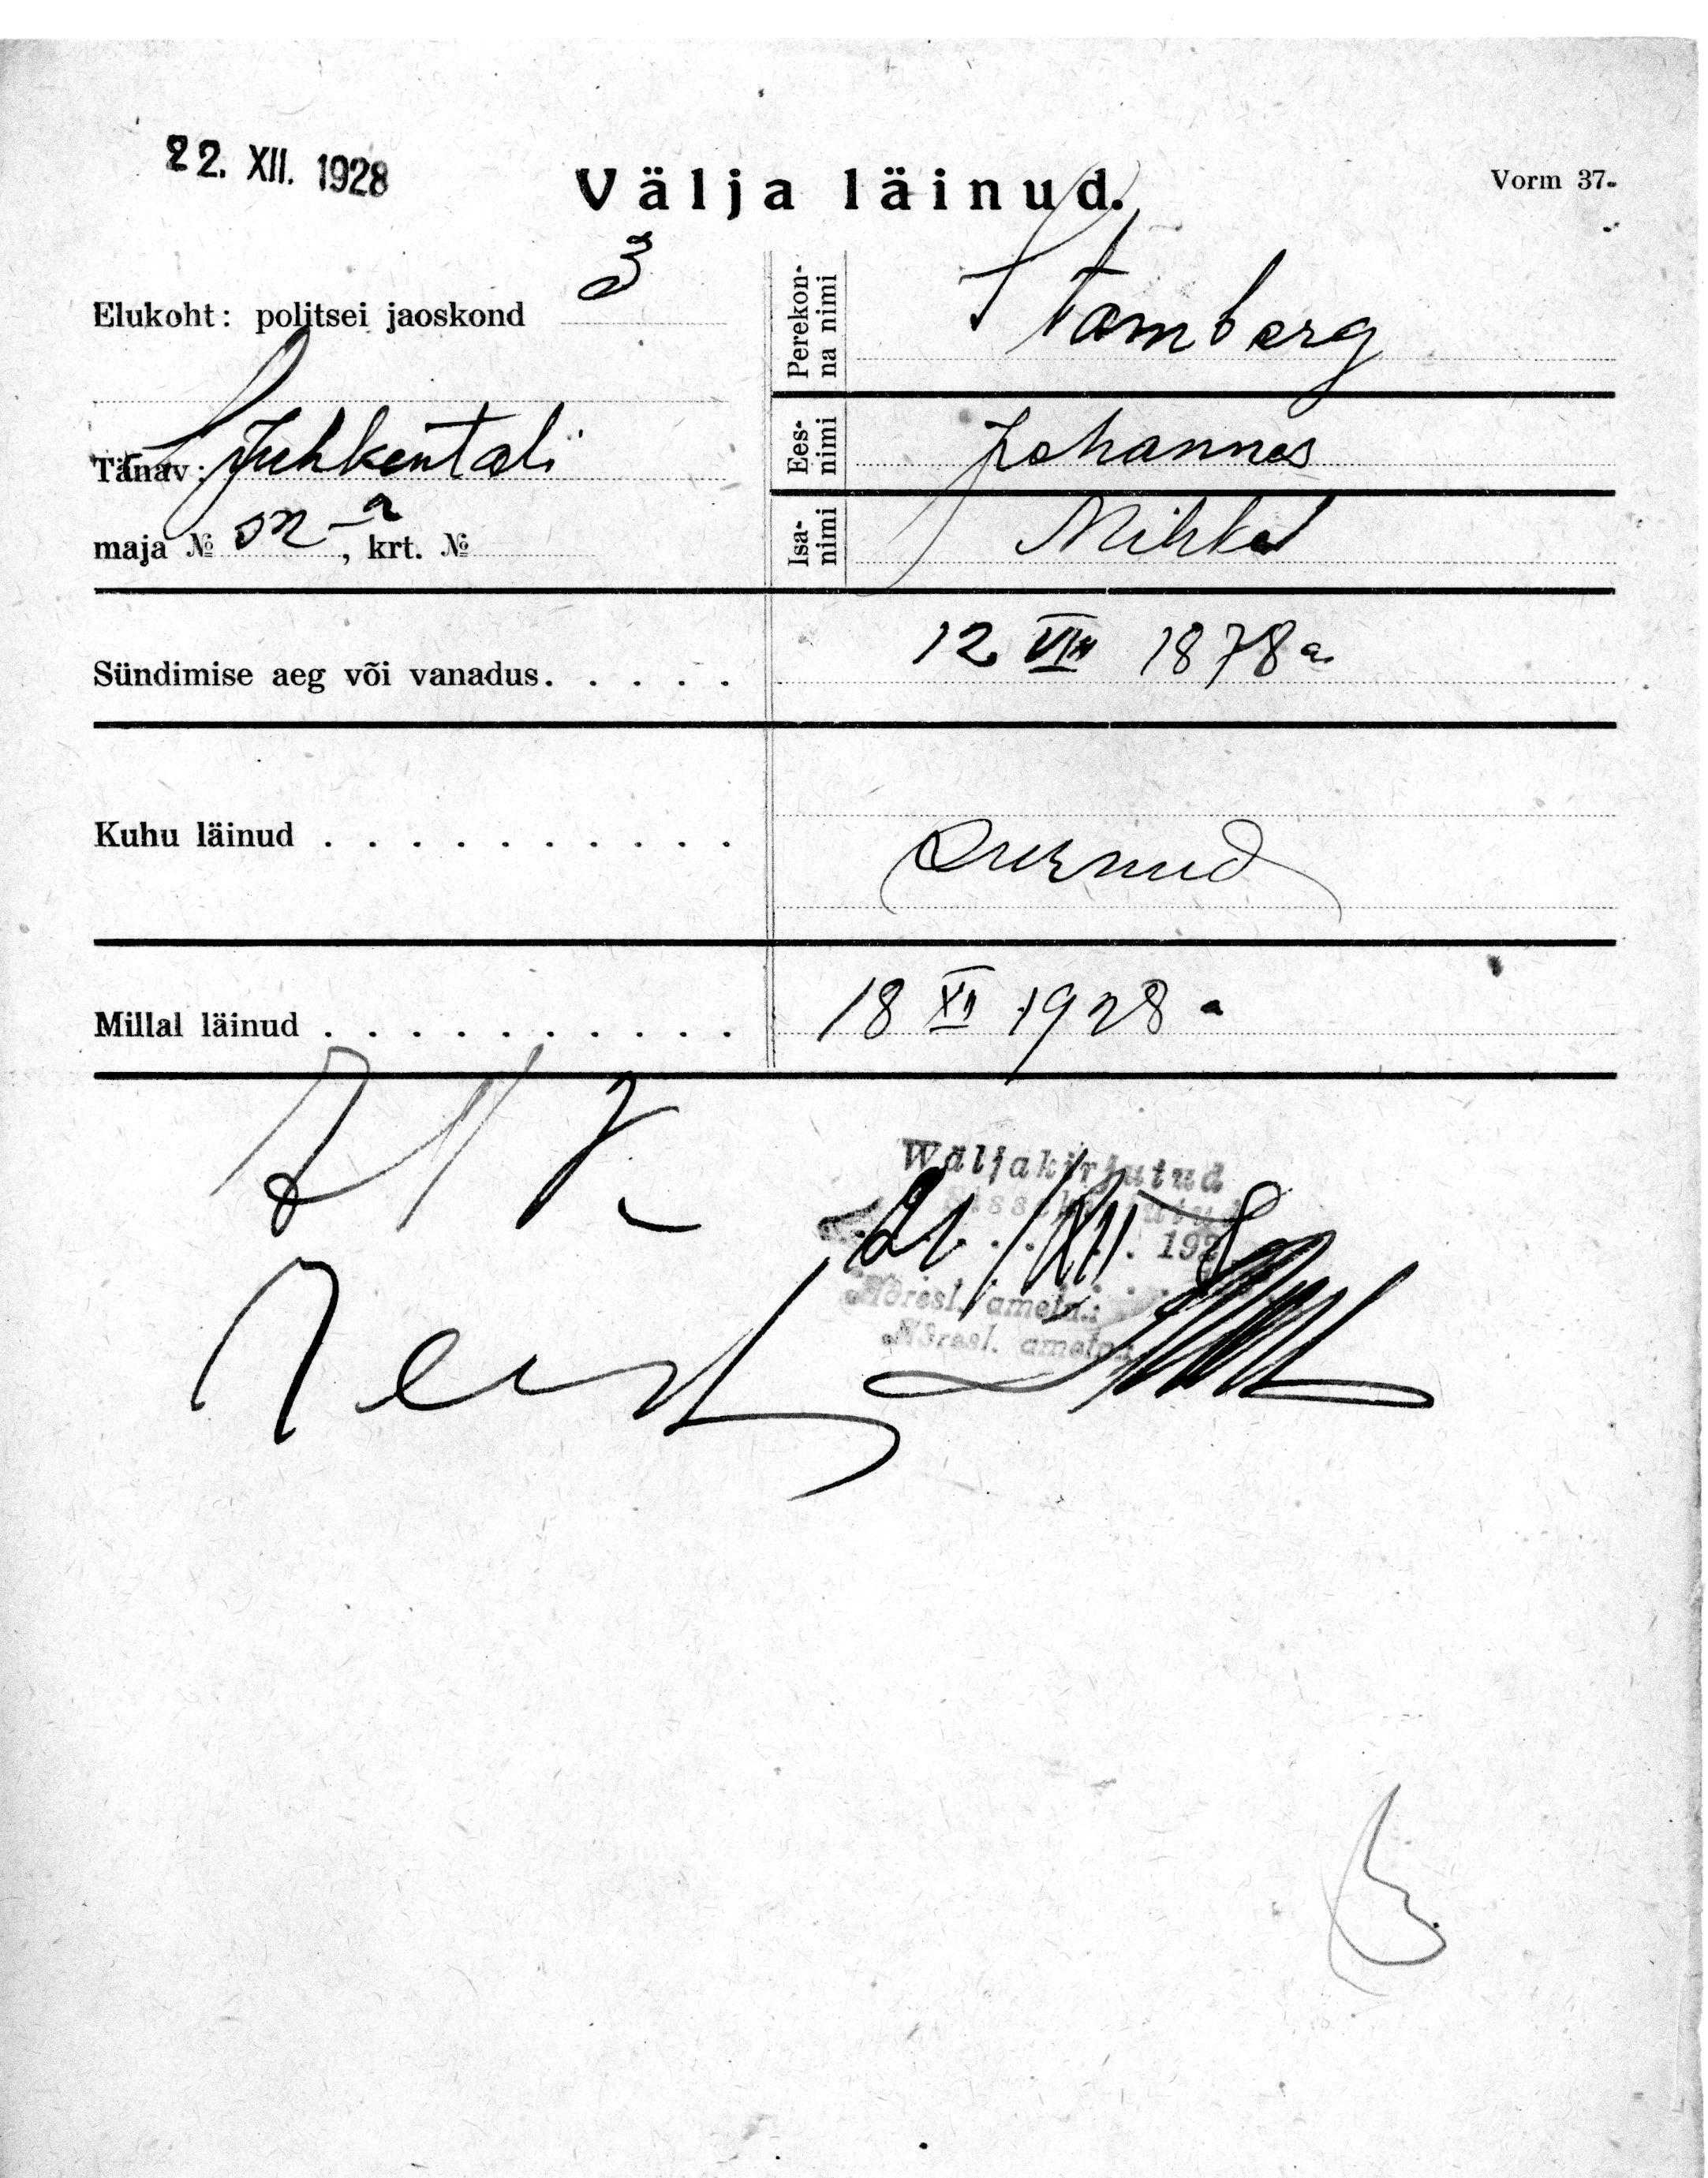 22. XII. 1928
Välja läinud.
Vorm 37.
Elukoht: politsei jaoskond 3
Tänav: Juhkentali
maja № 52-a, krt. №
Perekonna nimi Stamberg
Eesnimi Johannes
Isanimi Mihkel
Sündimise aeg või vanadus. . . . . 12 VIII 1878 a.
Kuhu läinud . . . . . . . . . . Surnud
Millal läinud . . . . . . . . . . 18 XII 1928 a
Wäljakirjutud
21. XII 1928
Adresl. ametn.:
Adresl. ametn.: